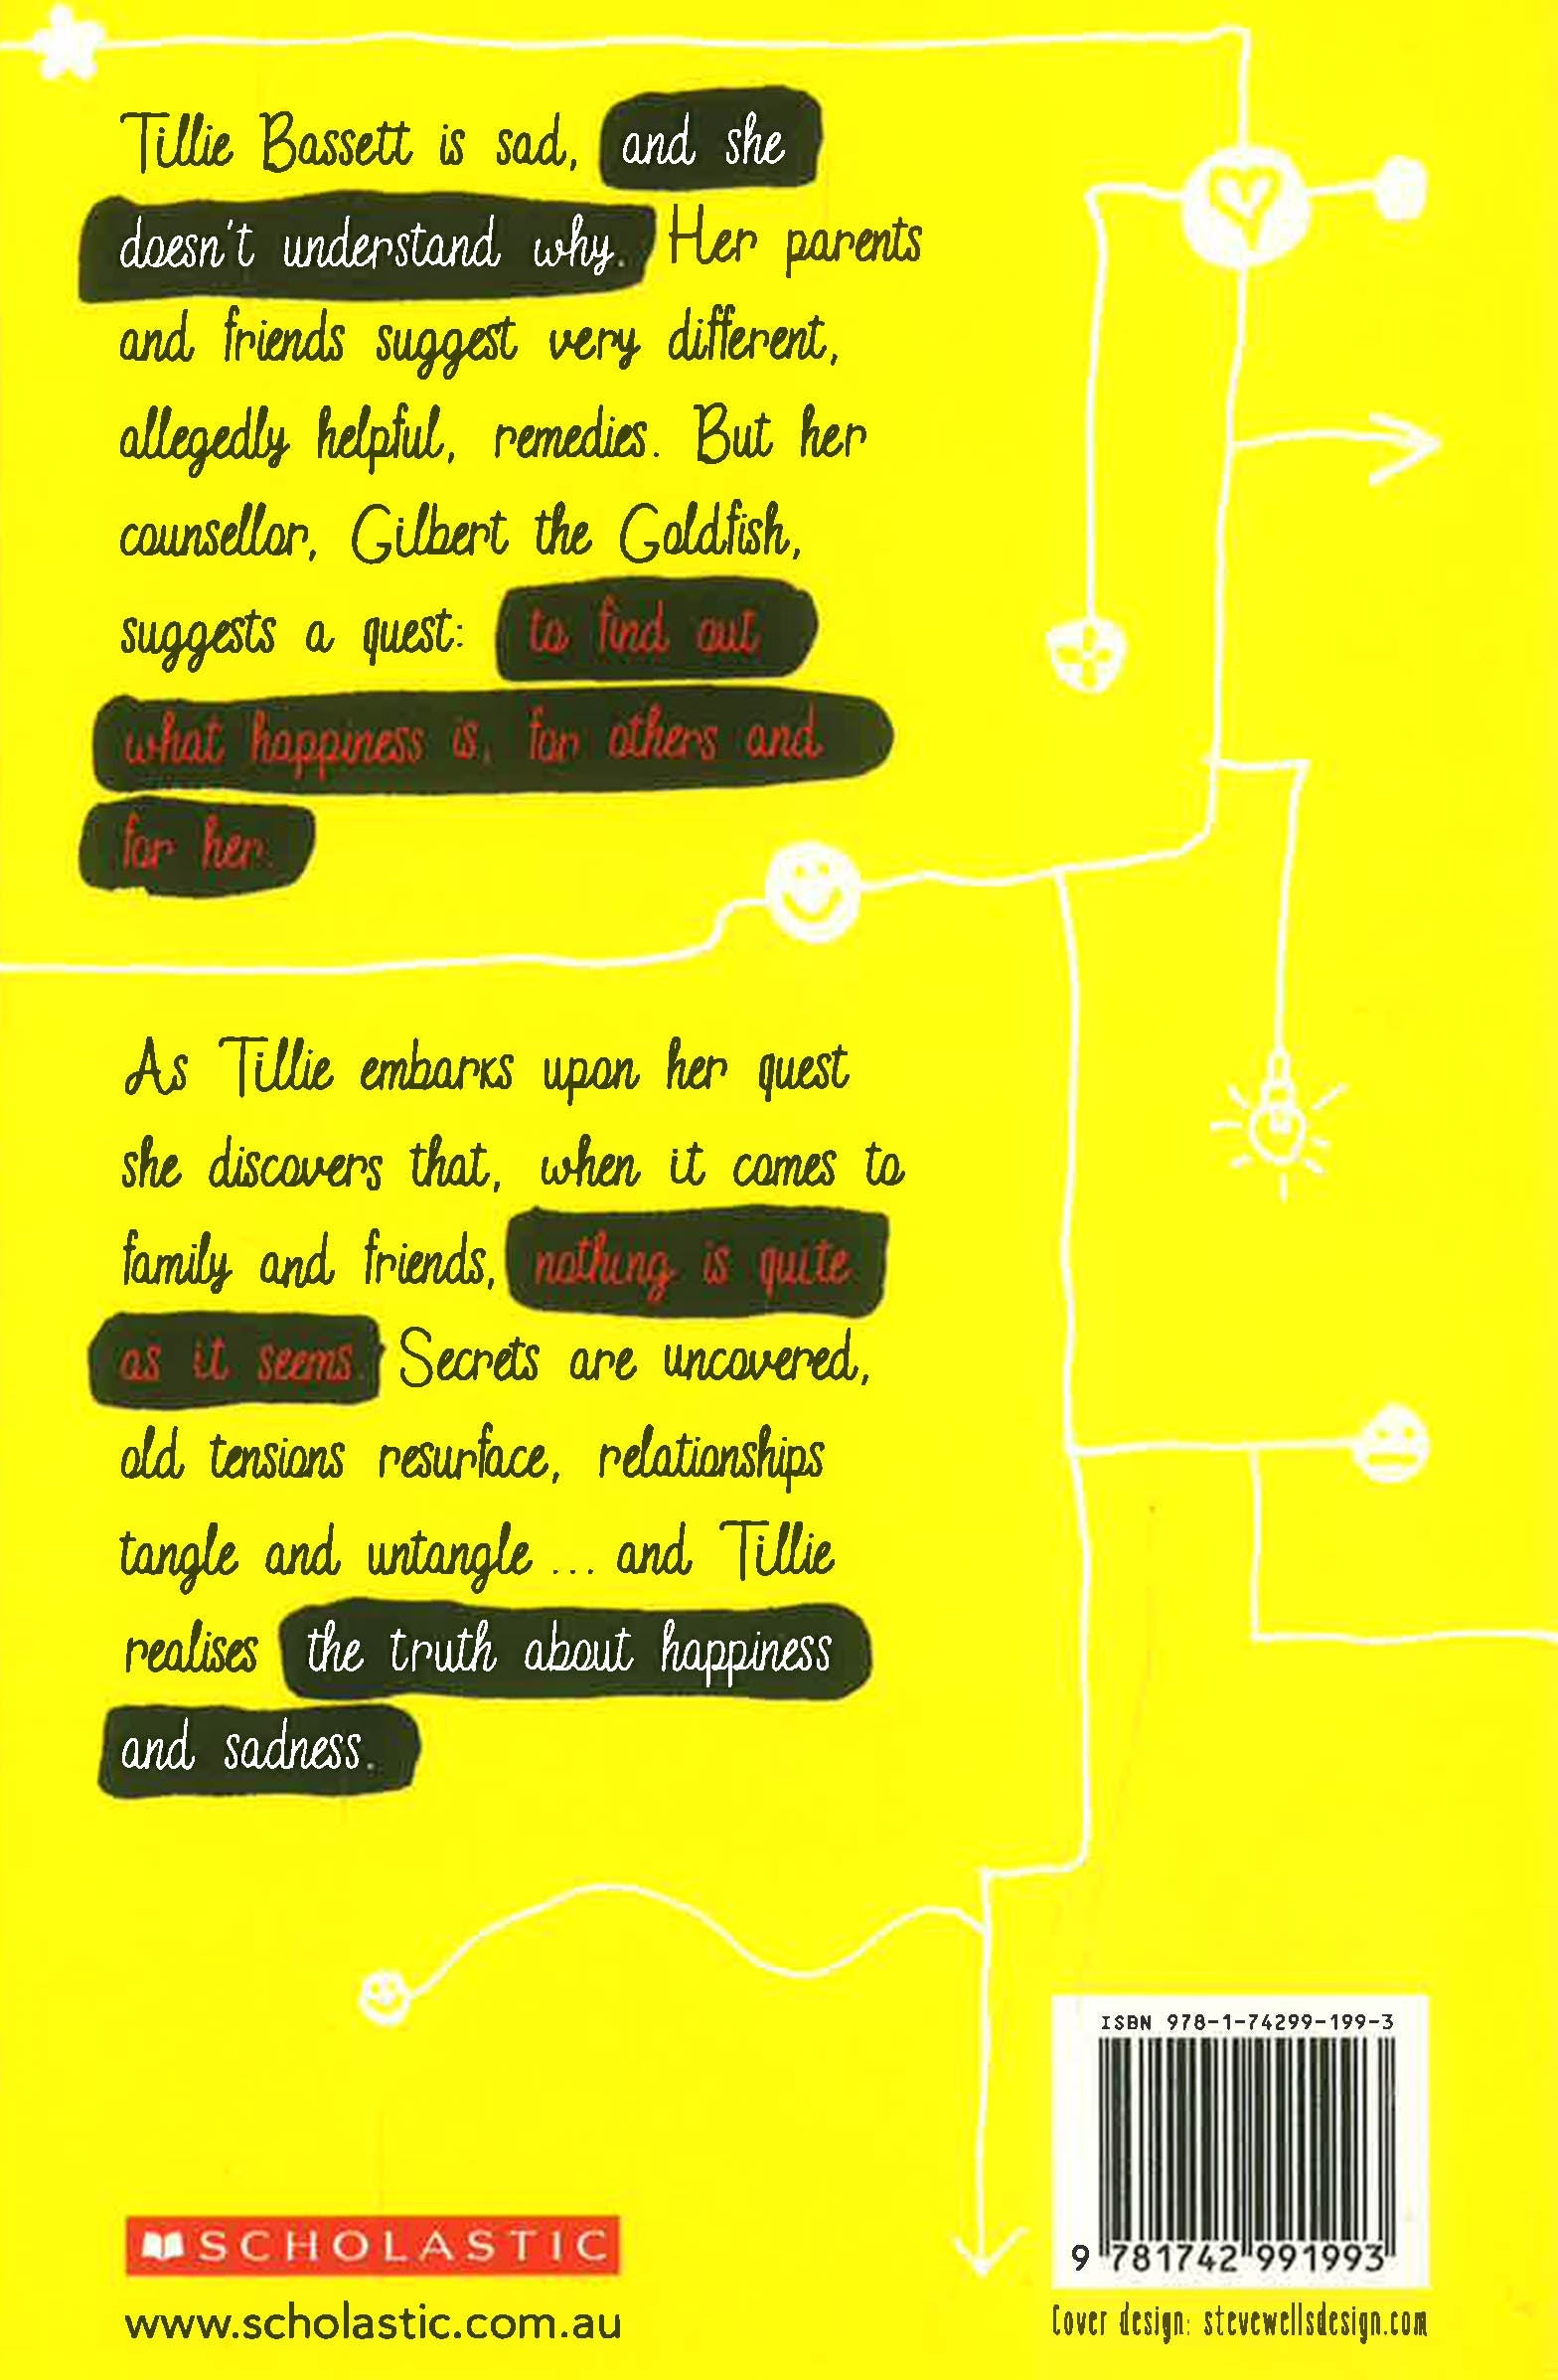 Tillie Bassett is sad, and she
doesn't understand why. Her parents
and friends suggest very different,
allegedly helpful, remedies. But her
counsellor, Gilbert the Goldfish,
suggests a quest: to find out
what happiness is, for others and
for her.
As Tillie embarks upon her quest
she discovers that, when it comes to
family and friends, nothing is quite
as it seems. Secrets are uncovered,
old tensions resurface, relationships
tangle and untangle ... and Tillie
realises the truth about happiness
and sadness.
ISBN 978-1-74299-199-3
9 781742 991993
SCHOLASTIC
www.scholastic.com.au
Cover design: stevewellsdesign.com